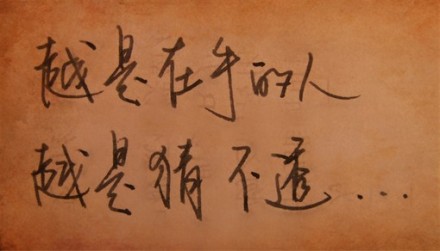 越是在乎的人
越是猜不透...